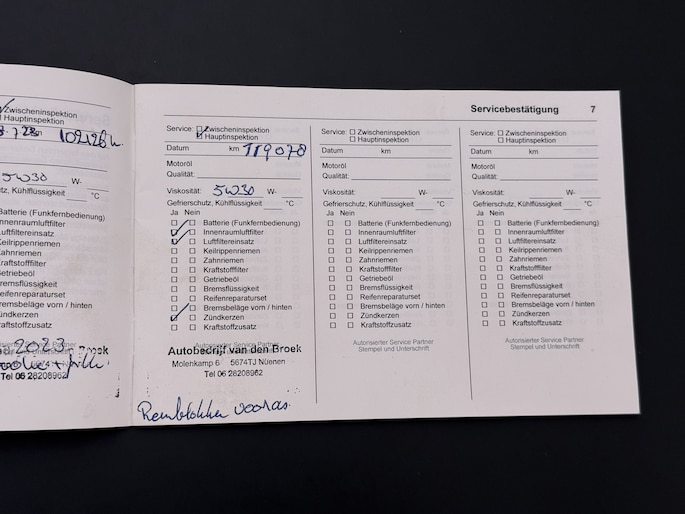 Zwischeninspektion
Hauptinspektion
102128 k.
5W30 W-
tz, Kühlflüssigkeit °C
Batterie (Funkfernbedienung)
Innenraumluftfilter
Luftfiltereinsatz
Keilrippenriemen
Zahnriemen
Kraftstofffilter
Getriebeöl
Bremsflüssigkeit
Reifenreparaturset
Bremsbeläge vorn / hinten
Zündkerzen
Kraftstoffzusatz
2023
Service Partner
5674TJ Nüenen
Tel 06 28208962
Servicebestätigung 7
Service: Zwischeninspektion
Hauptinspektion
Datum km 119078
Motoröl
Qualität:
Viskosität: 5W30 W-
Gefrierschutz, Kühlflüssigkeit °C
Ja Nein
Batterie (Funkfernbedienung)
Innenraumluftfilter
Luftfiltereinsatz
Keilrippenriemen
Zahnriemen
Kraftstofffilter
Getriebeöl
Bremsflüssigkeit
Reifenreparaturset
Bremsbeläge vorn / hinten
Zündkerzen
Kraftstoffzusatz
Autorisierter Service Partner
Autobedrijf van den Broek
Molenkamp 6 5674TJ Nüenen
Tel 06 28208962
Remblokken vooras.
Service: Zwischeninspektion
Hauptinspektion
Datum km
Motoröl
Qualität:
Viskosität: W-
Gefrierschutz, Kühlflüssigkeit °C
Ja Nein
Batterie (Funkfernbedienung)
Innenraumluftfilter
Luftfiltereinsatz
Keilrippenriemen
Zahnriemen
Kraftstofffilter
Getriebeöl
Bremsflüssigkeit
Reifenreparaturset
Bremsbeläge vorn / hinten
Zündkerzen
Kraftstoffzusatz
Autorisierter Service Partner
Stempel und Unterschrift
Service: Zwischeninspektion
Hauptinspektion
Datum km
Motoröl
Qualität:
Viskosität: W-
Gefrierschutz, Kühlflüssigkeit °C
Ja Nein
Batterie (Funkfernbedienung)
Innenraumluftfilter
Luftfiltereinsatz
Keilrippenriemen
Zahnriemen
Kraftstofffilter
Getriebeöl
Bremsflüssigkeit
Reifenreparaturset
Bremsbeläge vorn / hinten
Zündkerzen
Kraftstoffzusatz
Autorisierter Service Partner
Stempel und Unterschrift